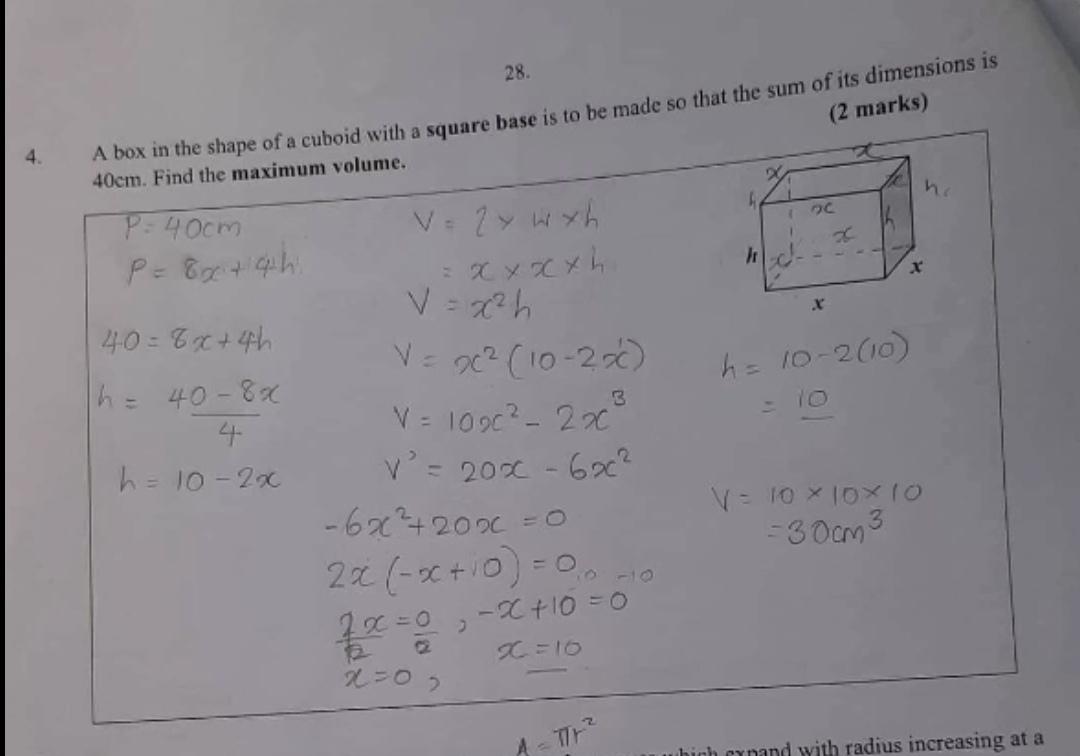 28.
4. A box in the shape of a cuboid with a square base is to be made so that the sum of its dimensions is
40cm. Find the maximum volume.
(2 marks)
P = 40cm
P = 8x + 4h
40 = 8x + 4h
h = 40 - 8x
4
h = 10 - 2x
V = l × w × h
= x × x × h
V = x²h
V = x² (10 - 2x)
V = 10x² - 2x³
V' = 20x - 6x²
-6x² + 20x = 0
2x (-x + 10) = 0
10 -10
2x = 0 , -x + 10 = 0
2 2
x = 0 , x = 10
x
x
x
h
h.
x
h
x
h
x
x
x
h = 10 - 2(10)
= 10
V = 10 × 10 × 10
= 30cm³
A = πr²
which expand with radius increasing at a